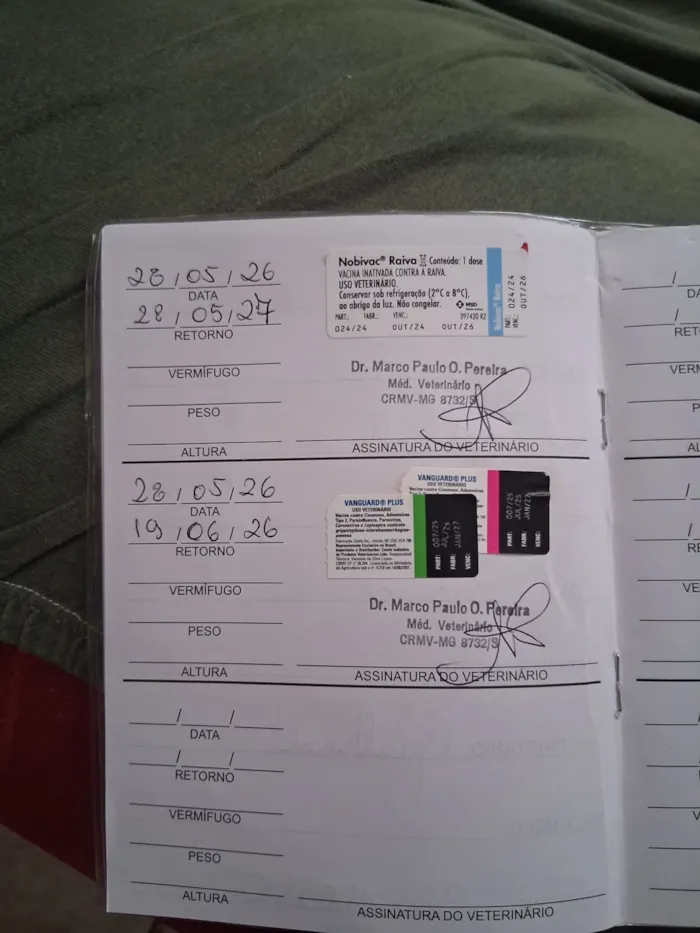 28/05/26
DATA
28/05/27
RETORNO
VERMÍFUGO
PESO
ALTURA
Nobivac® Raiva Conteúdo: 1 dose
VACINA INATIVADA CONTRA A RAIVA.
USO VETERINÁRIO.
Conservar sob refrigeração (2°C a 8°C),
ao abrigo da luz. Não congelar.
PART.: FABR.: VENC.: 397420 R2
024/24 OUT/24 OUT/26
Nobivac® Raiva
PART.: 024/24
VENC.: OUT/26
Dr. Marco Paulo O. Pereira
Méd. Veterinário
CRMV-MG 8732/S
ASSINATURA DO VETERINÁRIO
28/05/26
DATA
19/06/26
RETORNO
VERMÍFUGO
PESO
ALTURA
VANGUARD® PLUS
USO VETERINÁRIO
VANGUARD® PLUS
USO VETERINÁRIO
Vacina contra Cinomose, Adenovírus
Tipo 2, Parainfluenza, Parvovírus,
PART: 007/25
FABR: JUL/25
VENC: JAN/27
PART: 007/25
FABR: JUL/25
VENC: JAN/27
Dr. Marco Paulo O. Pereira
Méd. Veterinário
CRMV-MG 8732/S
ASSINATURA DO VETERINÁRIO
DATA
RETORNO
VERMÍFUGO
PESO
ALTURA
ASSINATURA DO VETERINÁRIO